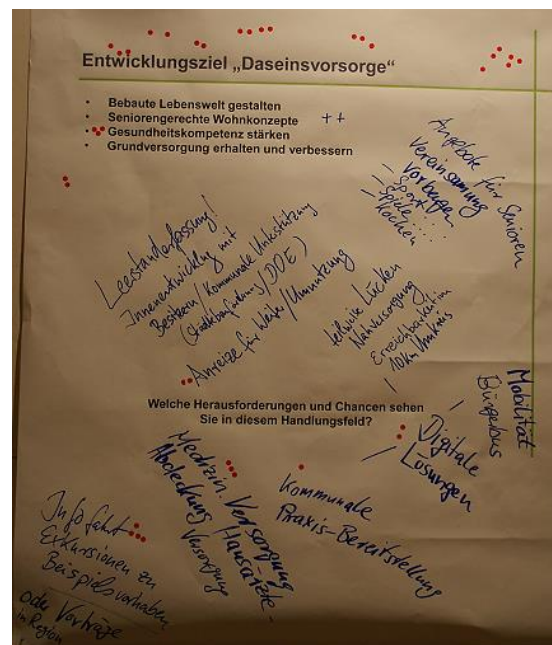 Entwicklungsziel „Daseinsvorsorge“
• Bebaute Lebenswelt gestalten
• Seniorengerechte Wohnkonzepte ++
• Gesundheitskompetenz stärken
• Grundversorgung erhalten und verbessern
Angebote für Senioren
Vereinsamung
Vorbeugen
Sport
Spiele....
Kochen
Leerstanderfassung!
Innenentwicklung mit
Besitzern/Kommunale Unterstützung
(Städtebauförderung/DOE)
Anreize für Weiter/Umnutzung
teilweise Lücken
Nahversorgung
Erreichbarkeit im
10km Umkreis
Welche Herausforderungen und Chancen sehen
Sie in diesem Handlungsfeld?
Mobilität
Bürgerbus
Digitale
Lösungen
Medizin. Versorgung
Abdeckung Hausärzte-
Versorgung
Kommunale
Praxis-Bereitstellung
Infofahrt
Exkursionen zu
Beispielsvorhaben
oder Vorträge
in Region